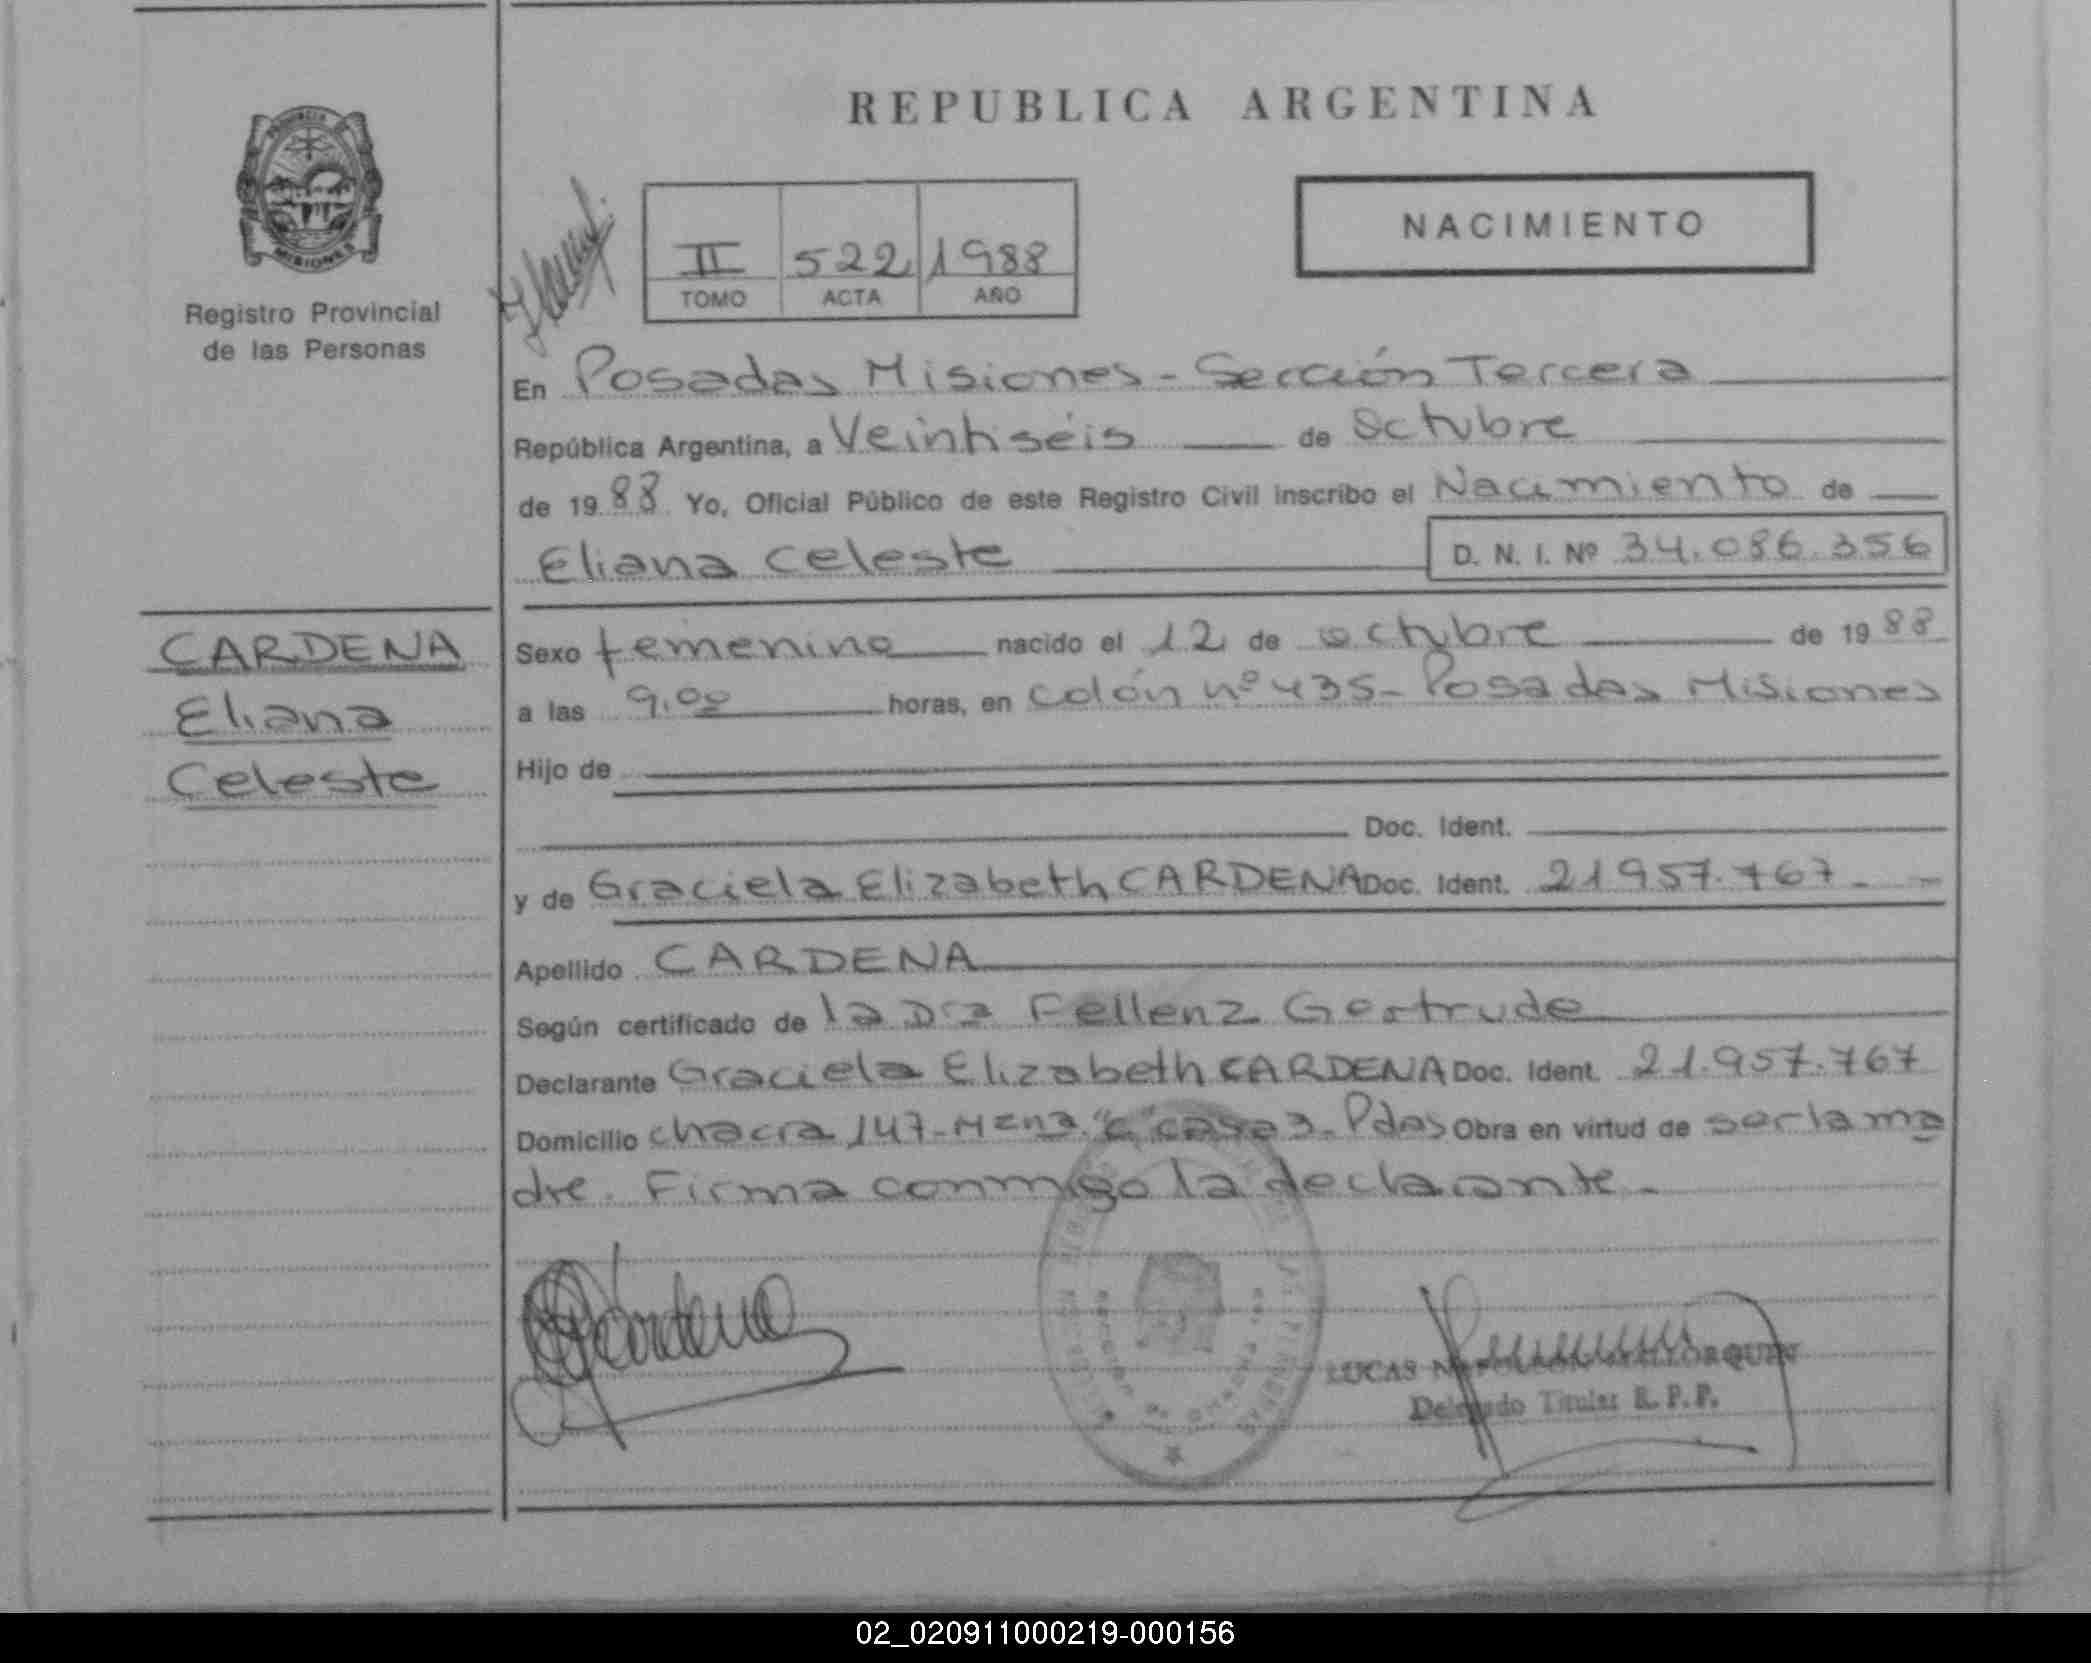 REPUBLICA ARGENTINA
PROVINCIA DE
MISIONES
Registro Provincial
de las Personas
II 522 1988
TOMO ACTA AÑO
NACIMIENTO
En Posadas Misiones - Sección Tercera
República Argentina, a Veintiséis de Octubre
de 1988 Yo, Oficial Público de este Registro Civil inscribo el Nacimiento de
Eliana Celeste D. N. I. Nº 34.086.356
CARDENA
Eliana
Celeste
Sexo femenino nacido el 12 de octubre de 1988
a las 9.00 horas, en Colón nº 435 - Posadas Misiones
Hijo de
Doc. Ident.
y de Graciela Elizabeth CARDENA Doc. Ident. 21957.767.-
Apellido CARDENA
Según certificado de la Dra Fellenz Gertrude
Declarante Graciela Elizabeth CARDENA Doc. Ident. 21.957.767
Domicilio chacra 147- Mzna. "C" casa 3- Pdas Obra en virtud de ser la ma
dre. Firma conmigo la declarante.-
Cardena
LUCAS
Delegado Titular R. P. P.
02_020911000219-000156